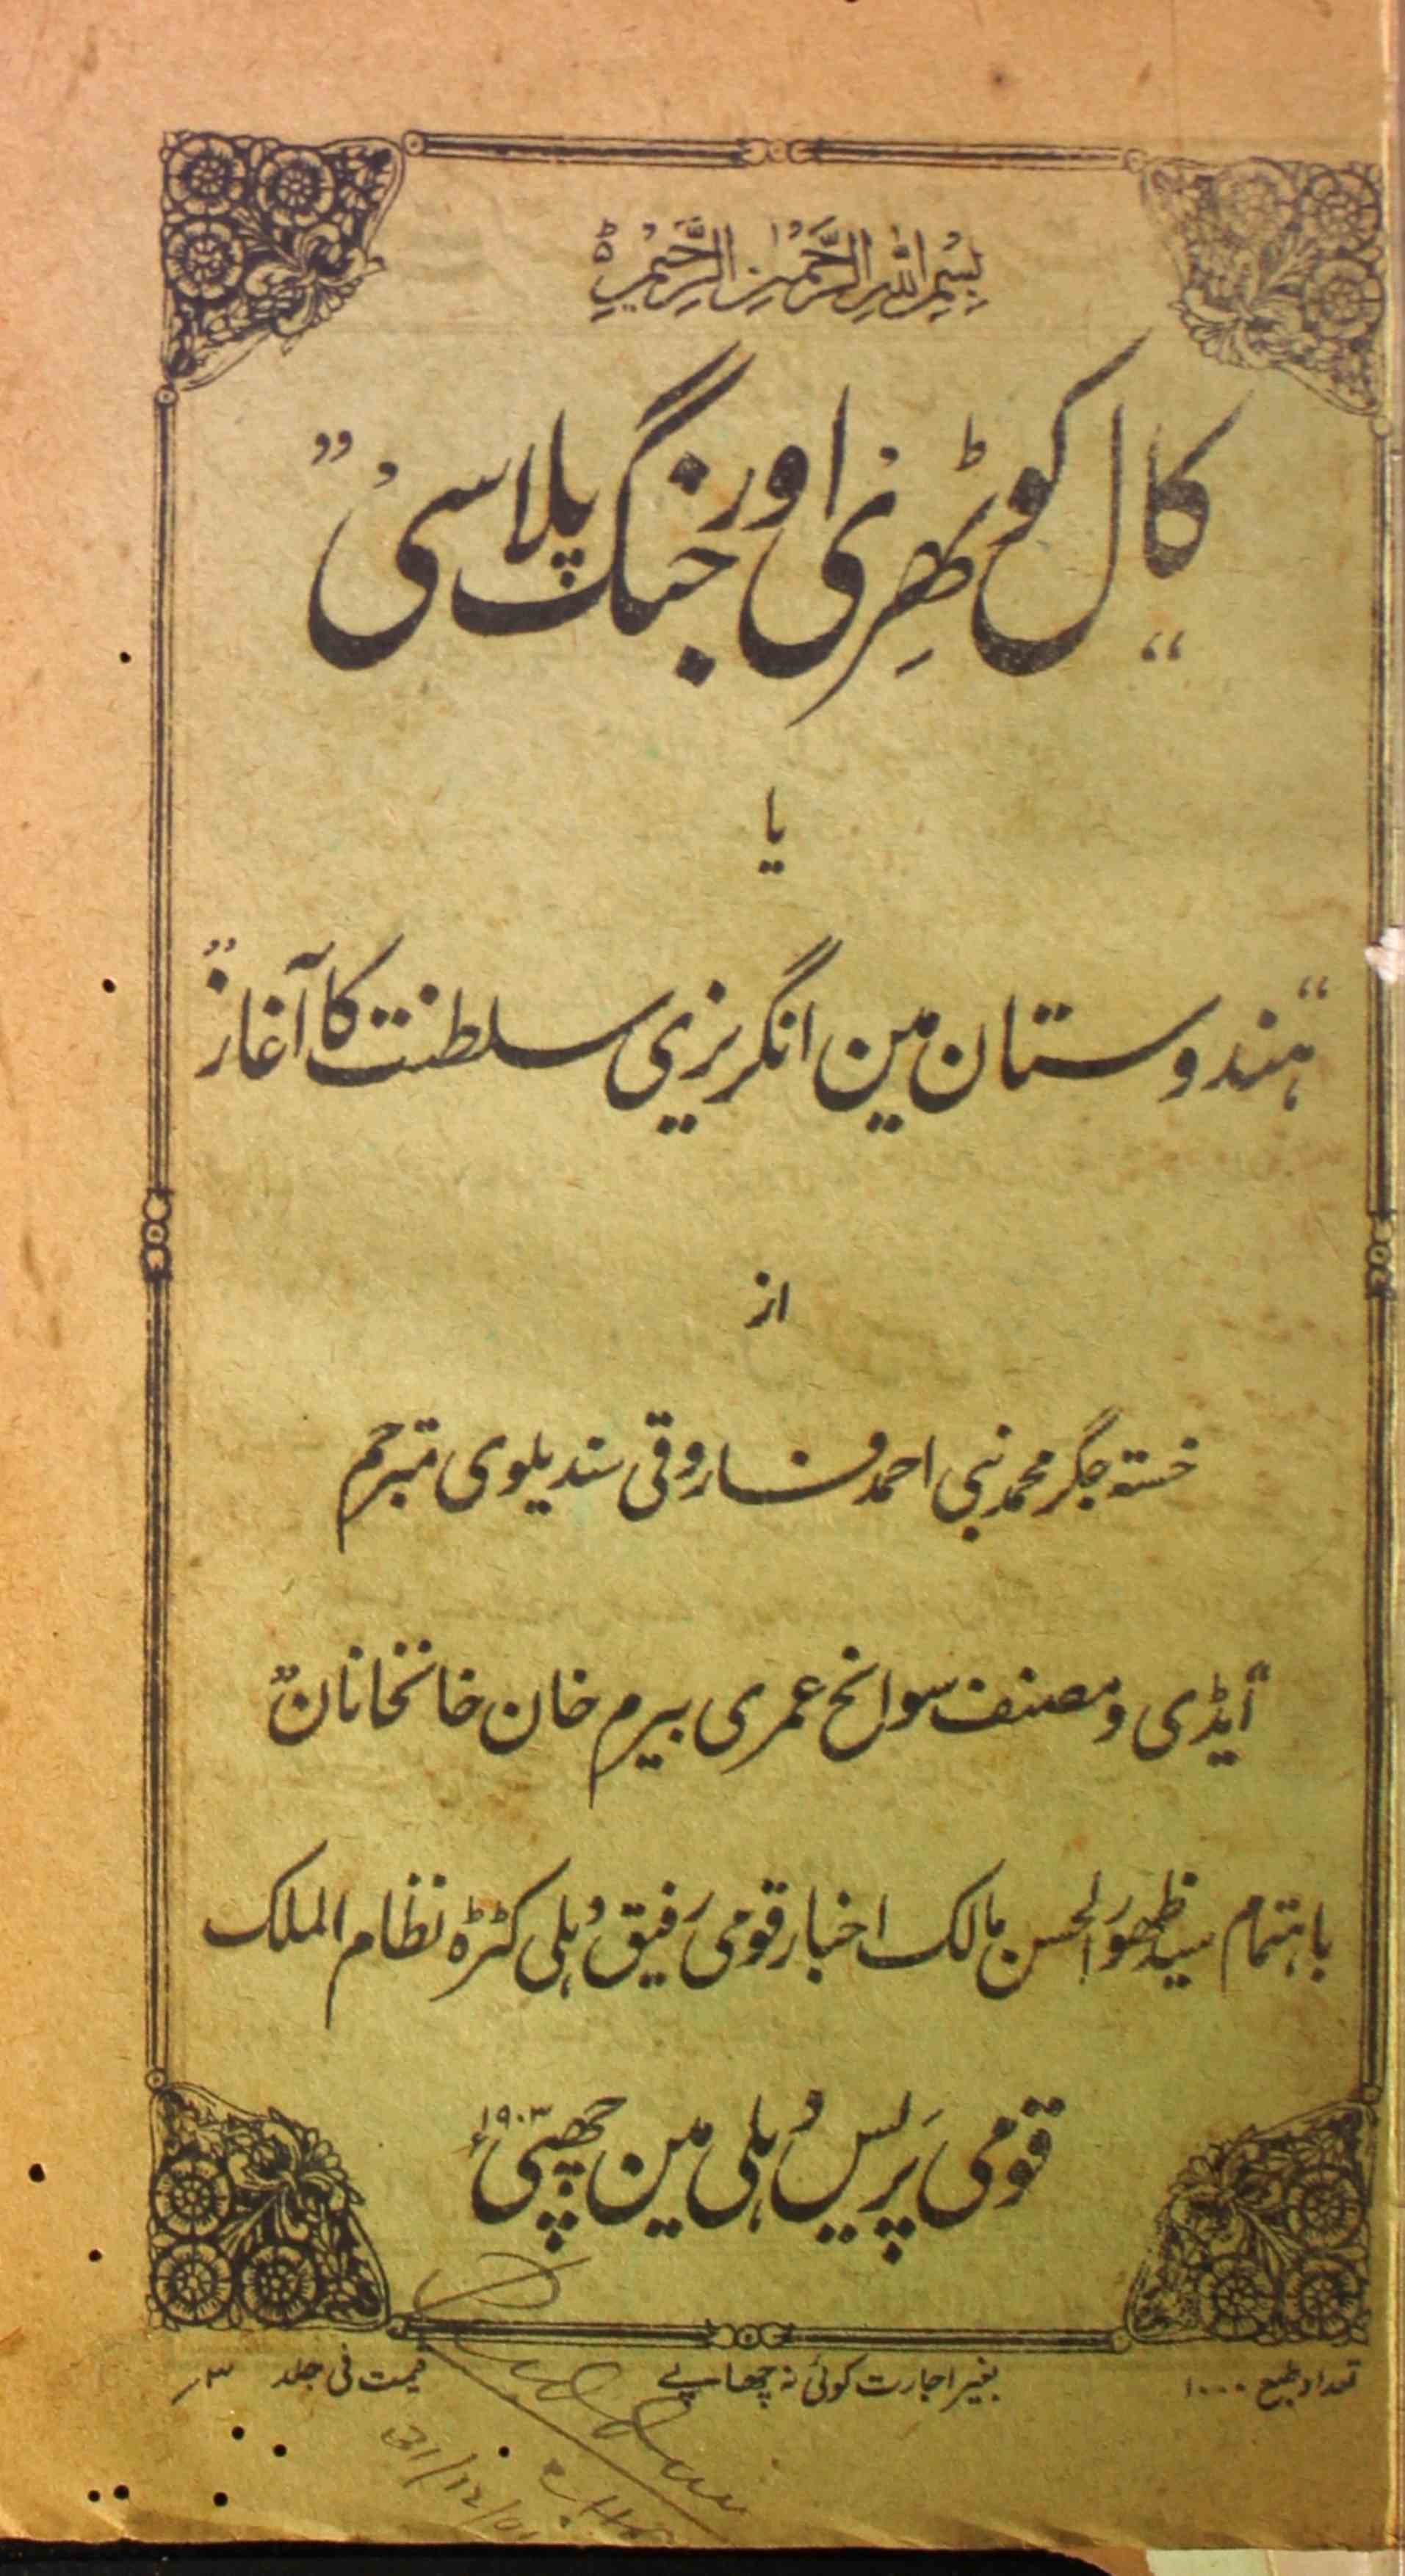 بِسْمِ اللّٰهِ الرَّحْمٰنِ الرَّحِیْمِ ؕ
“کال کوٹھرِی اور جنگ پلاسی”
یا
“ہندوستان مین انگریزی سلطنت کا آغاز”
از
خستہ جگر محمد نبی احمد فاروقی سندیلوی مترجم
“ایڈی و مصنف سوانح عمری بیرم خان خانخانان”
باہتمام سید ظہور الحسن مالک اخبار قومی رفیق دہلی کٹرہ نظام الملک
قومی پریس دہلی مین چھپی ۱۹۰۳ء
تعداد طبع ۱۰۰۰ بغیر اجازت کوئی نہ چھاپے قیمت فی جلد ۳ر
31/12/01